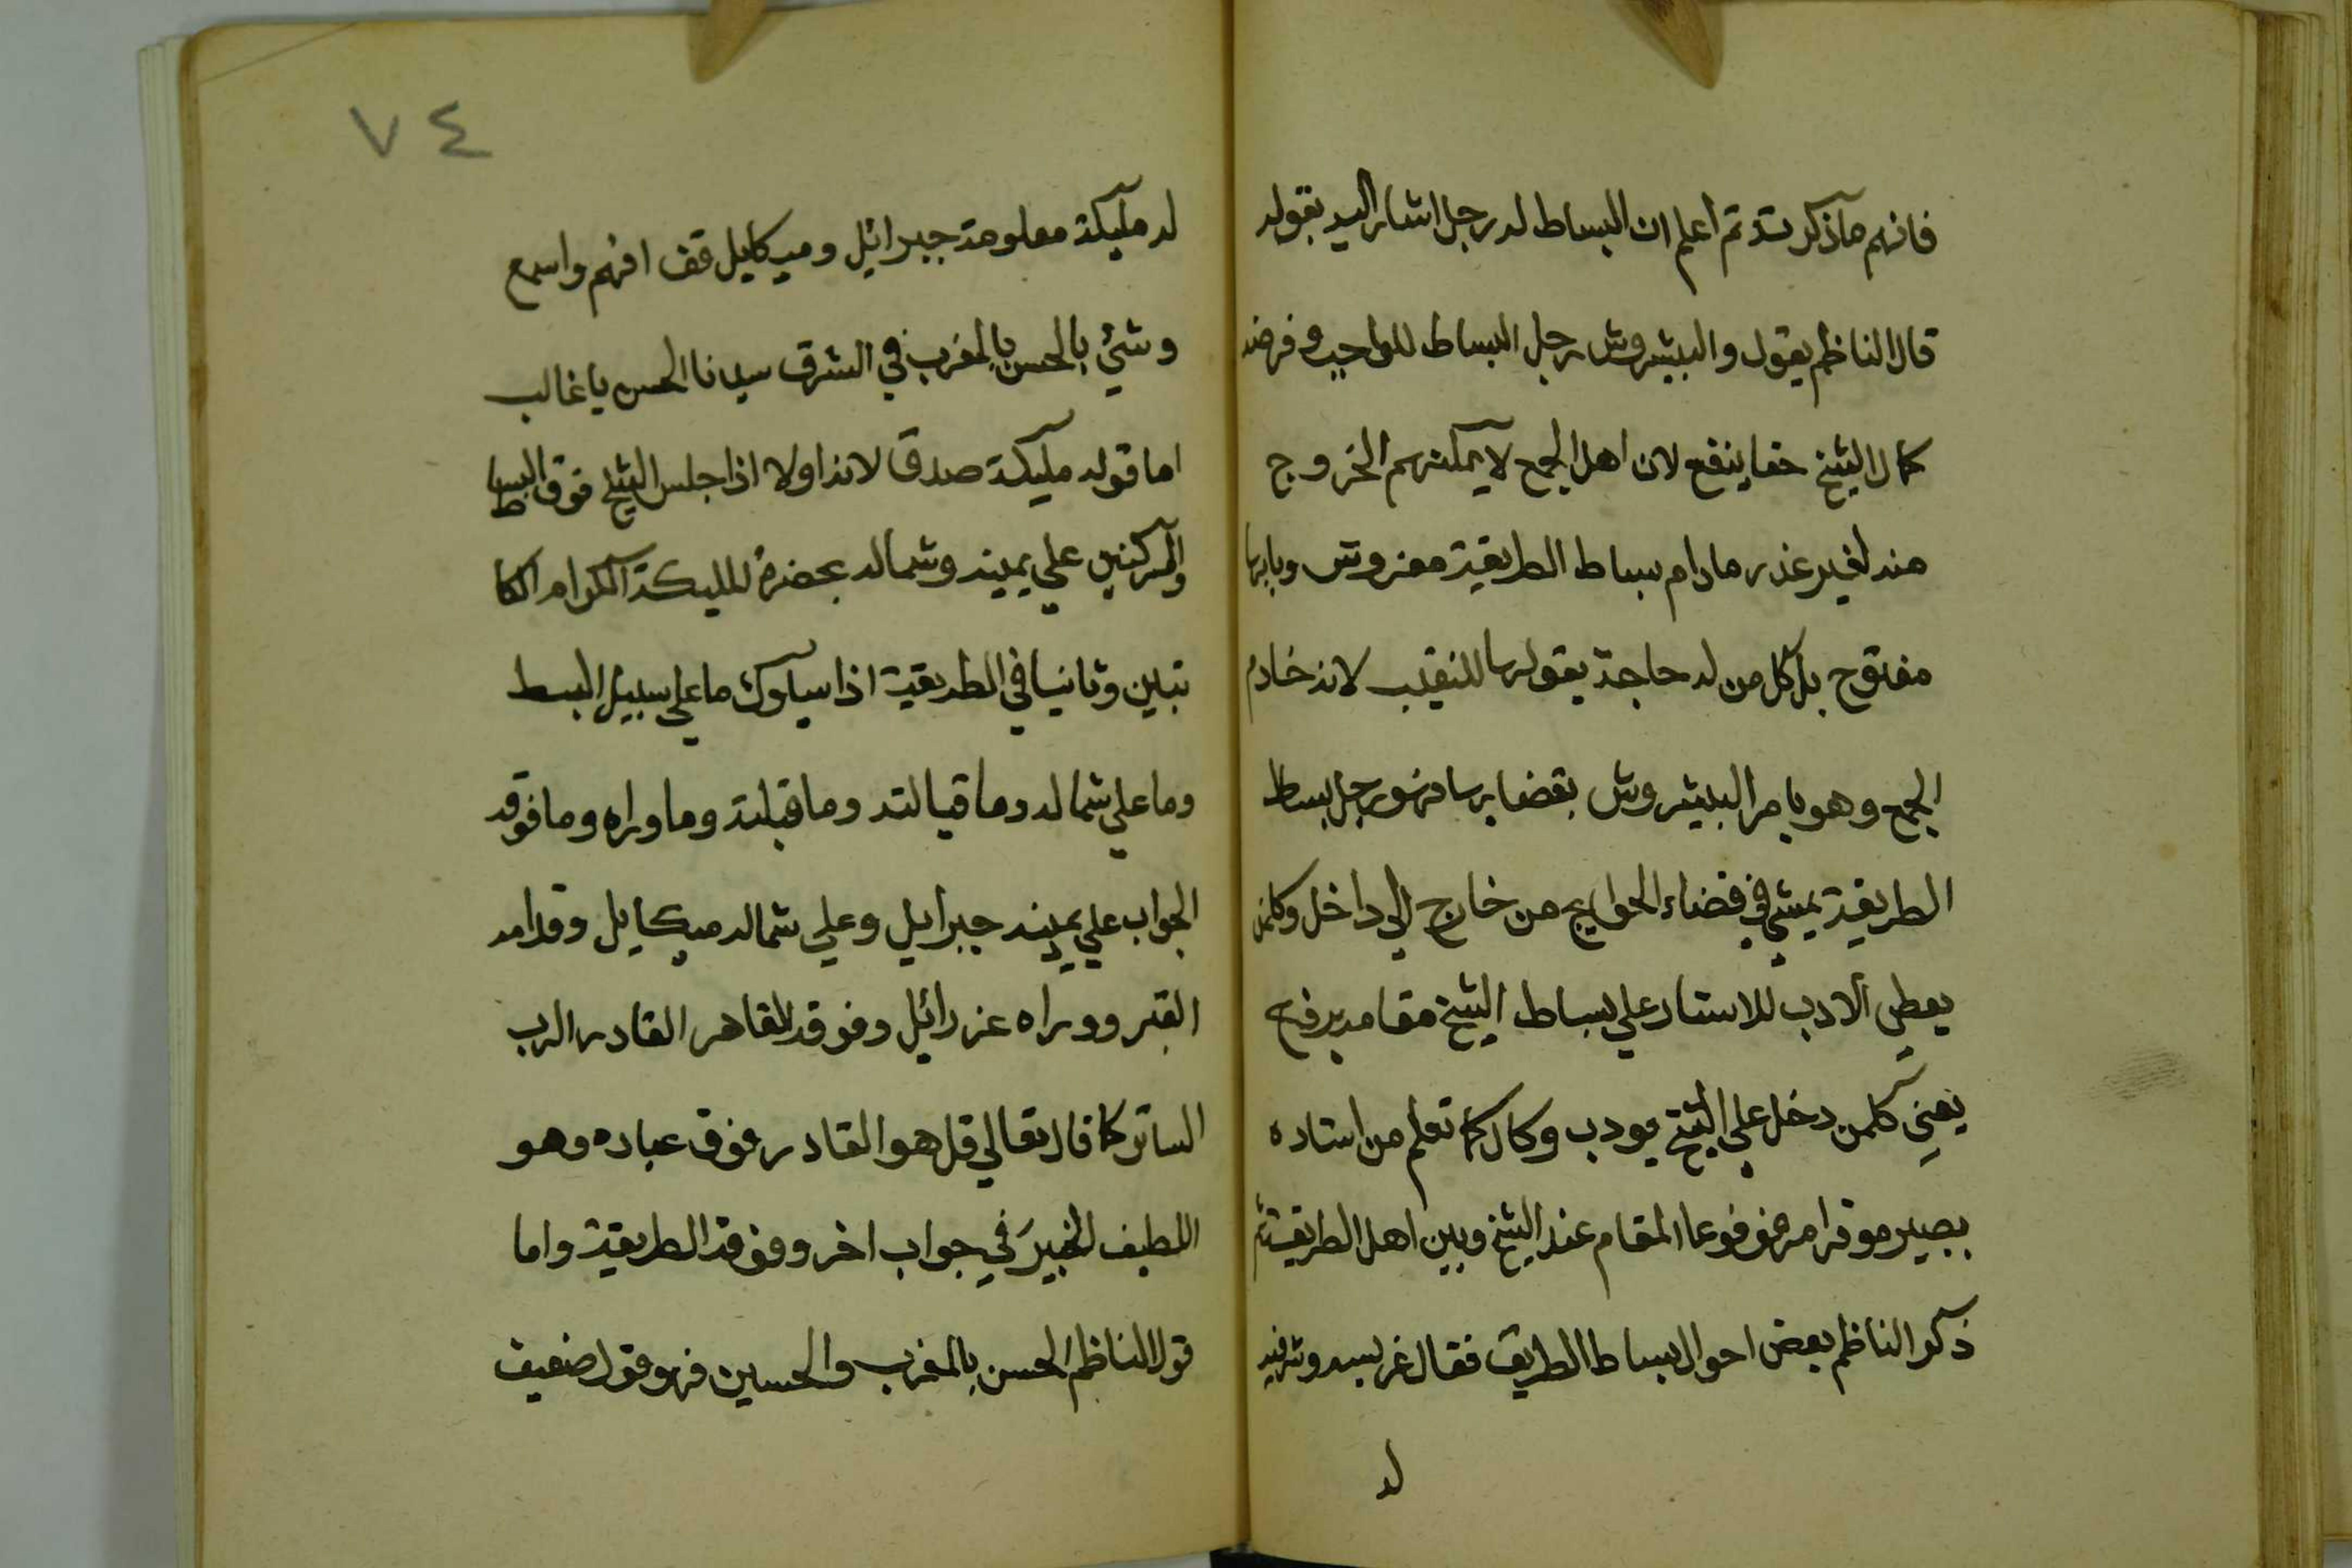 فافهم ما ذكرته ثم اعلم ان البساط له رجل اشار اليه بقوله
قال الناظم يقول والبيشروش رجل البساط للواجب وفرضه
كمال الشيخ حقا ينفع لان اهل الجمع لا يمكنهم الخروج
منه لغير عذر مادام بساط الطريقية مفروش وبابها
مفتوح بل كل من له حاجة يقولها للنقيب لانه خادم
الجمع وهو يامر البيشروش بقضايها فهو رجل بساط
الطريقية يمشي في قضاء الحوايج من خارج الي داخل وكلمن
يعطي الادب للاستاد علي بساط الشيخ مقامه يرفع
يعني كلمن دخل علي الشيخ بودب وكال كما تعلم من استاده
بصير موقرا مرفوعا المقام عند الشيخ وبين اهل الطريقية ثم
ذكر الناظم بعض احوال بساط الطريق فقال غرب وشرفيه
له
٧٤
له مليكة معلومة جبرائيل وميكايل قف افهم واسمع
وشيئ بالحسن بالمغرب في الشرق سيدنا الحسن يا غالب
اما قوله مليكة صدق لانه اولا اذا جلس الشيخ فوق البساط
والمركنين علي يمينه وشماله بحضرة المليكة الكرام الكا
تبين وثانيا في الطريقية اذا سيلوك ما علي سبيل البسط
وما علي شماله وما قيالته وما قبلته وما وراه وما فوقه
الجواب علي يمينه جبرايل وعلي شماله ميكايل وقدامه
القبر ووراه عزرائيل وفوقه القاهر القادر الرب
الساتر كما قال تعالي قل هو القادر فوق عباده وهو
اللطيف الخبير في جواب اخر وفوقه الطريقية واما
قول الناظم الحسن بالمغرب والحسين فهو قول ضعيف